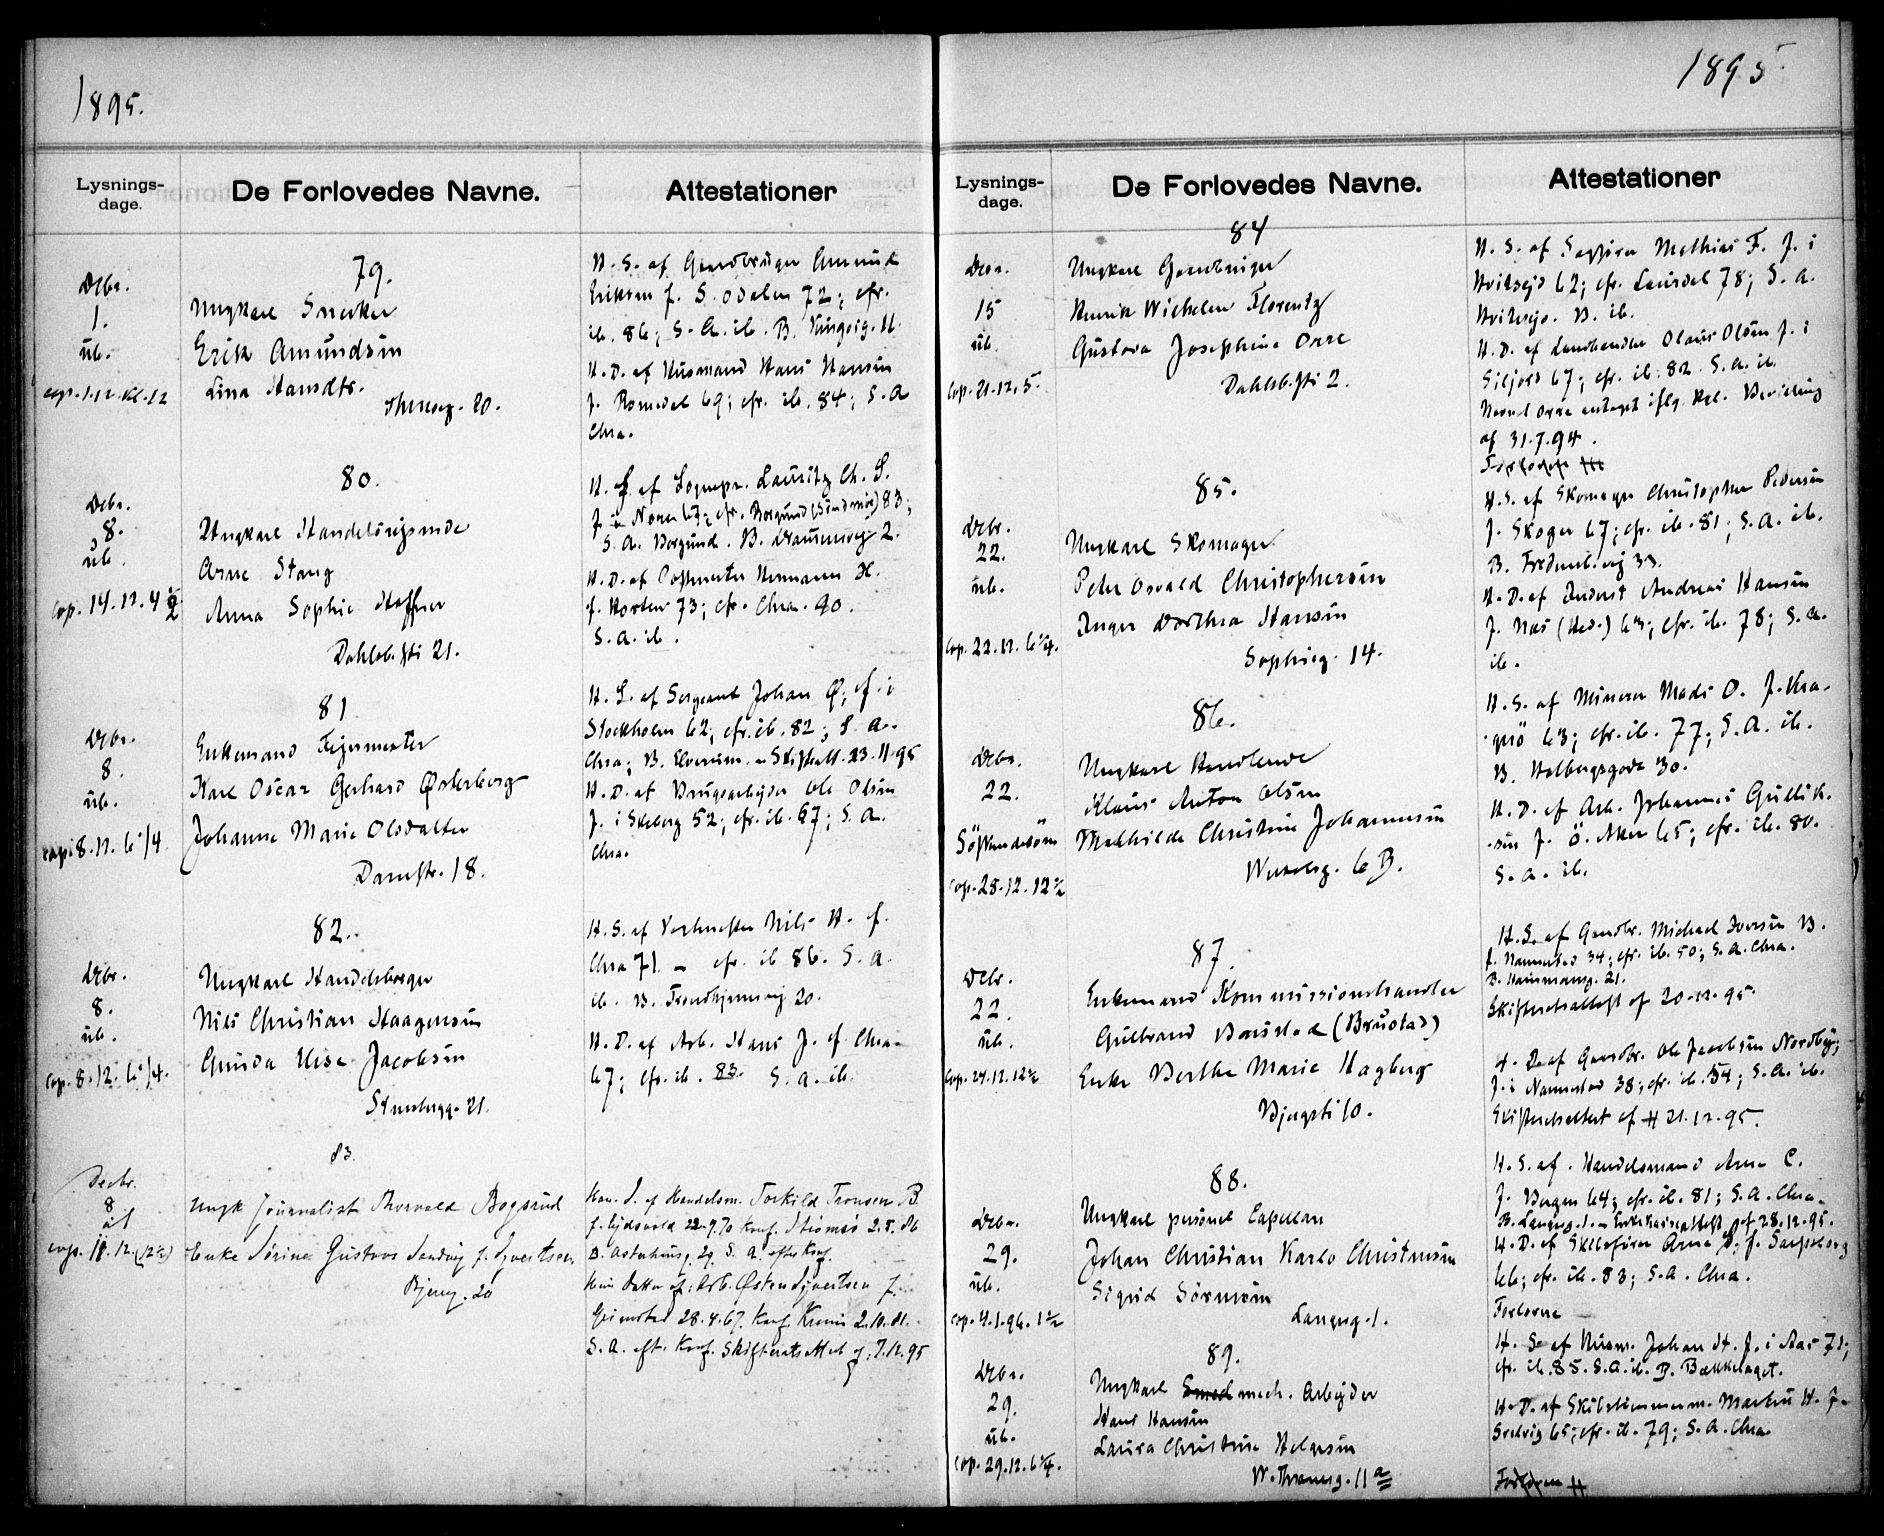 1895.
Lysnings-
dage.
De Forlovedes Navne.
Attestationer
79.
Debr.
1.
üb.
cop. 1.12. Kl. 12
Ungkarl Snecker
Erik Amundsen
Lina Hansdtr.
20.
H. S. af Gaardbruger Amund
Eriksen f. S. Odalen 72; cfr.
ib. 86; S. A. ib. B.
H. D. af Husmand Hans Hansen
f. Romedal 69; cfr. ib. 84; S. A
Chra.
80.
Debr.
8.
üb.
cop. 14.12. 4
Ungkarl Handelsreisende
Arne Stang
Anna Sophie Haffner
Dahlsb.sti 21.
H. S. af Sognepr. Lauritz Ch. S.
f. i Nora 67; cfr. Borgund (Söndmör) 83;
S. A. Borgund. B. 2.
H. D. af Postmester Hermann H.
f. Horten 73; cfr. Chra. 90.
S. A. ib.
81
Debr.
8.
üb.
cop. 8.12. 6 1/4
Enkemand Feiermester
Karl Oscar Gerhard Østerberg
Johanne Marie Olsdatter
Damstr. 18.
H. S. af Sergeant Johan Ø; f. i
Stockholm 62; cfr. ib. 82; S. A.
Chra; B. Elverum. Skifteatt. 23.11.95
H. D. af Brugsarbejder Ole Olsen
f. i Skeberg 52; cfr. ib. 67; S. A.
Chra.
82.
Debr.
8.
üb.
cop. 8.12. 6 1/4.
Ungkarl Handelsborger
Nils Christian Haagensen
Gunda Elise Jacobsen
21.
H. S. af Værtmester Nils H. f.
Chra 71 - cfr. ib 86. S. A.
ib. B. Trondhjemsvej 20.
H. D. af Arb. Hans J. f. Chra.
67; cfr. ib. 83. S. A. ib.
83.
Decbr.
8
üb
cop. 11.12. (12 1/2)
Ungk Journalist Thorvald Bogsrud
Enke Sørine Gustava Sandvig f. Syvertsen
Bjerreg. 20
Han S. af Handelsm. Torkild Tronsen B.
f. Eidsvold 22.9.70 Konf. Strømsø 2.5.86
B. 29 S. A. efter Konf.
Hun Datter af: Arb. Østen Syvertsen f.
Grimstad 28.4.67. Konf. 2.10.81.
S. A. eft. Konf. Skifteratt 7.12.95
1895
Lysnings-
dage.
De Forlovedes Navne.
Attestationer
84
Debr.
15
üb.
cop. 21.12. 5.
Ungkarl Gaardbruger
Henrik Wilhelm Florentz
Gustava Josephine Orre
Dahlsb.sti 2.
H. S. af Mathias F. f. i
Hvitesejd 62; cfr. Laurdal 78; S. A.
Hvitesejd. B. ib.
H. D. af Landhandler Olaus Olsen f. i
Siljord 67; cfr. ib. 82. S. A. ib.
Navnet Orre antaget iflg. Kgl. Bevilling
af 31.7.94.
85.
Debr.
22.
üb.
cop. 22.12. 6 1/4.
Ungkarl Skomager
Peder Osvald Christophersen
Inger Dorthea Hansen
Sophieg. 14.
H. S. af Skomager Christopher Pedersen
f. Skoger 67; cfr. ib. 81; S. A. ib.
B. Fredensb.vej 33.
H. D. af Inderst Andreas Hansen
f. Næs (Hed.) 63; cfr. ib. 78; S. A.
ib.
86.
Debr.
22.
Söstrendesön
cop. 28.12. 12 1/2
Ungkarl Handlende
Klaus Anton Olsen
Mathilde Christine Johannesen
6 B.
H. S. af Minerer Mads O. f. Kra-
gerö 63; cfr. ib. 77; S. A. ib.
B. Holbergsgade 30.
H. D. af Arb. Johannes Gullik-
sen f. Ö. Aker 65; cfr. ib. 80.
S. A. ib.
87.
Debr.
22.
üb.
cop. 24.12. 12 1/2
Enkemand Kommissionshandler
Gulbrand Brustad (Brustad)
Enke Berthe Marie Hagberg
Bjergsti 10.
H. S. af Gaardbr. Michael Iversen B.
f. Nannestad 34; cfr. ib. 50; S. A. Chra.
B. 21.
Skifteretsattest af 20.12.95
H. D. af Gaardbr. Ole Jacobsen Nordby;
f. i Nannestad 38; cfr. ib. 54; S. A. ib.
Skifteretsattest af 21.12.95.
88.
Debr.
29.
üb.
cop. 4.1.96. 1 1/2
Ungkarl personel Capellan
Johan Christian Karlo Christensen
Sigrid Sörensen
Langeg. 1.
H. S. af. Handelsmand Arne C.
f. Bergen 64; cfr. ib. 81; S. A. Chra.
B. Langeg. 1. - af 28.12.95.
H. D. af Skibsfører Arne S; f. Sarpsborg
66; cfr. ib. 83; S. A. Chra.
Forlovere
89.
Debr.
29.
üb.
cop. 29.12. 6 1/4.
Ungkarl Smed mech. Arbejder
Hans Hansen
Laura Christine Helgesen
W. Thranesg. 11 a
H. S. af Husm. Johan H. f. i Aas 71;
cfr. ib. 85. S. A. ib. B. Bækkelaget.
H. D. af Skibstømmerm. Martin H. f.
65; cfr. ib. 79; S. A. Chra.